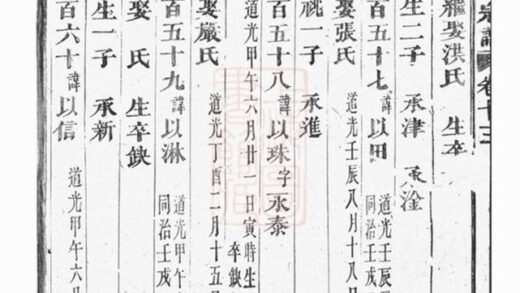 宗譜 卷十三
娶洪氏 生卒
生二子 承津 承淦
百五十七 諱以田 道光壬辰 同治壬戌
娶張氏 道光壬辰八月十八
祧一子 承進
百五十八 諱以珠字永泰
道光甲午六月廿一日寅時生 卒缺
娶嚴氏 道光丁酉二月十五
百五十九 諱以淋 道光甲午 同治壬戌
娶 氏 生卒缺
生一子 承新
百六十 諱以信 道光甲午六